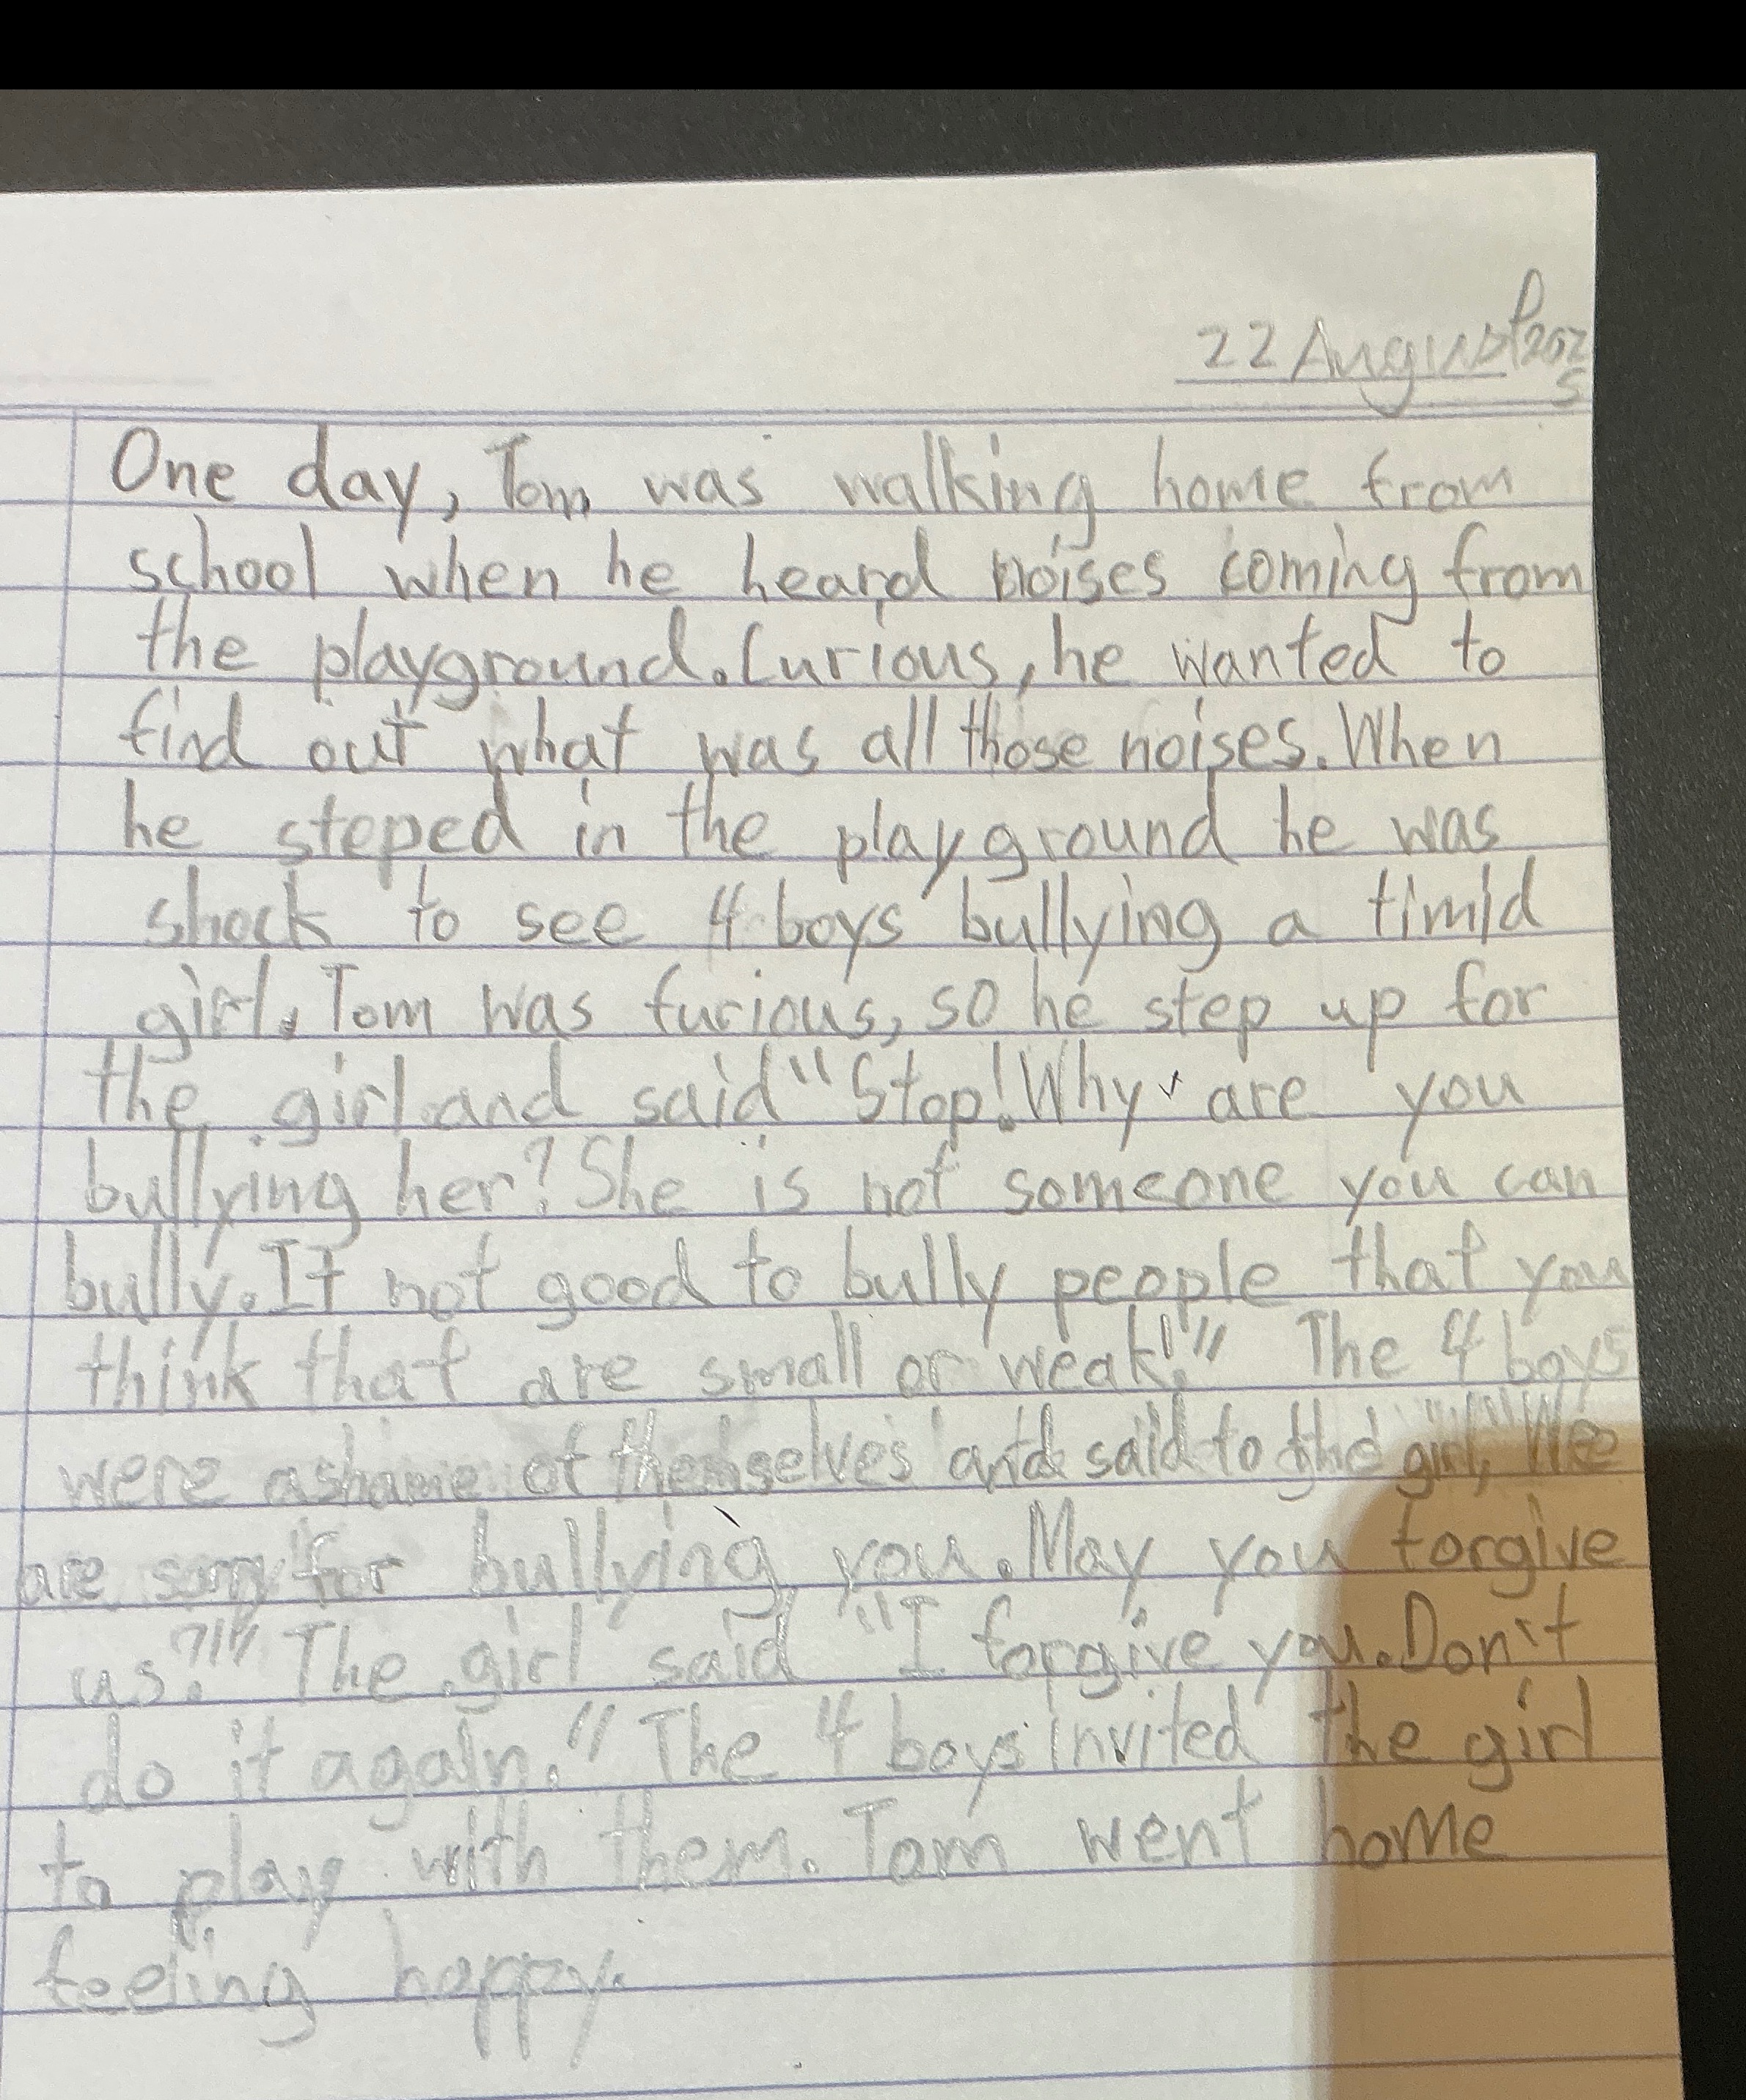 22 August 2025
One day, Tom was walking home from
school when he heard noises coming from
the playground. Curious, he wanted to
find out what was all those noises. When
he steped in the playground he was
shock to see 4 boys bullying a timid
girl. Tom was furious, so he step up for
the girl and said "Stop! Why are you
bullying her? She is not someone you can
bully. It not good to bully people that you
think that are small or weak!" The 4 boys
were ashame of themselves and said to the girl, "We
are sorry for bullying you. May you forgive
us?" The girl said "I forgive you. Don't
do it again." The 4 boys invited the girl
to play with them. Tom went home
feeling happy.